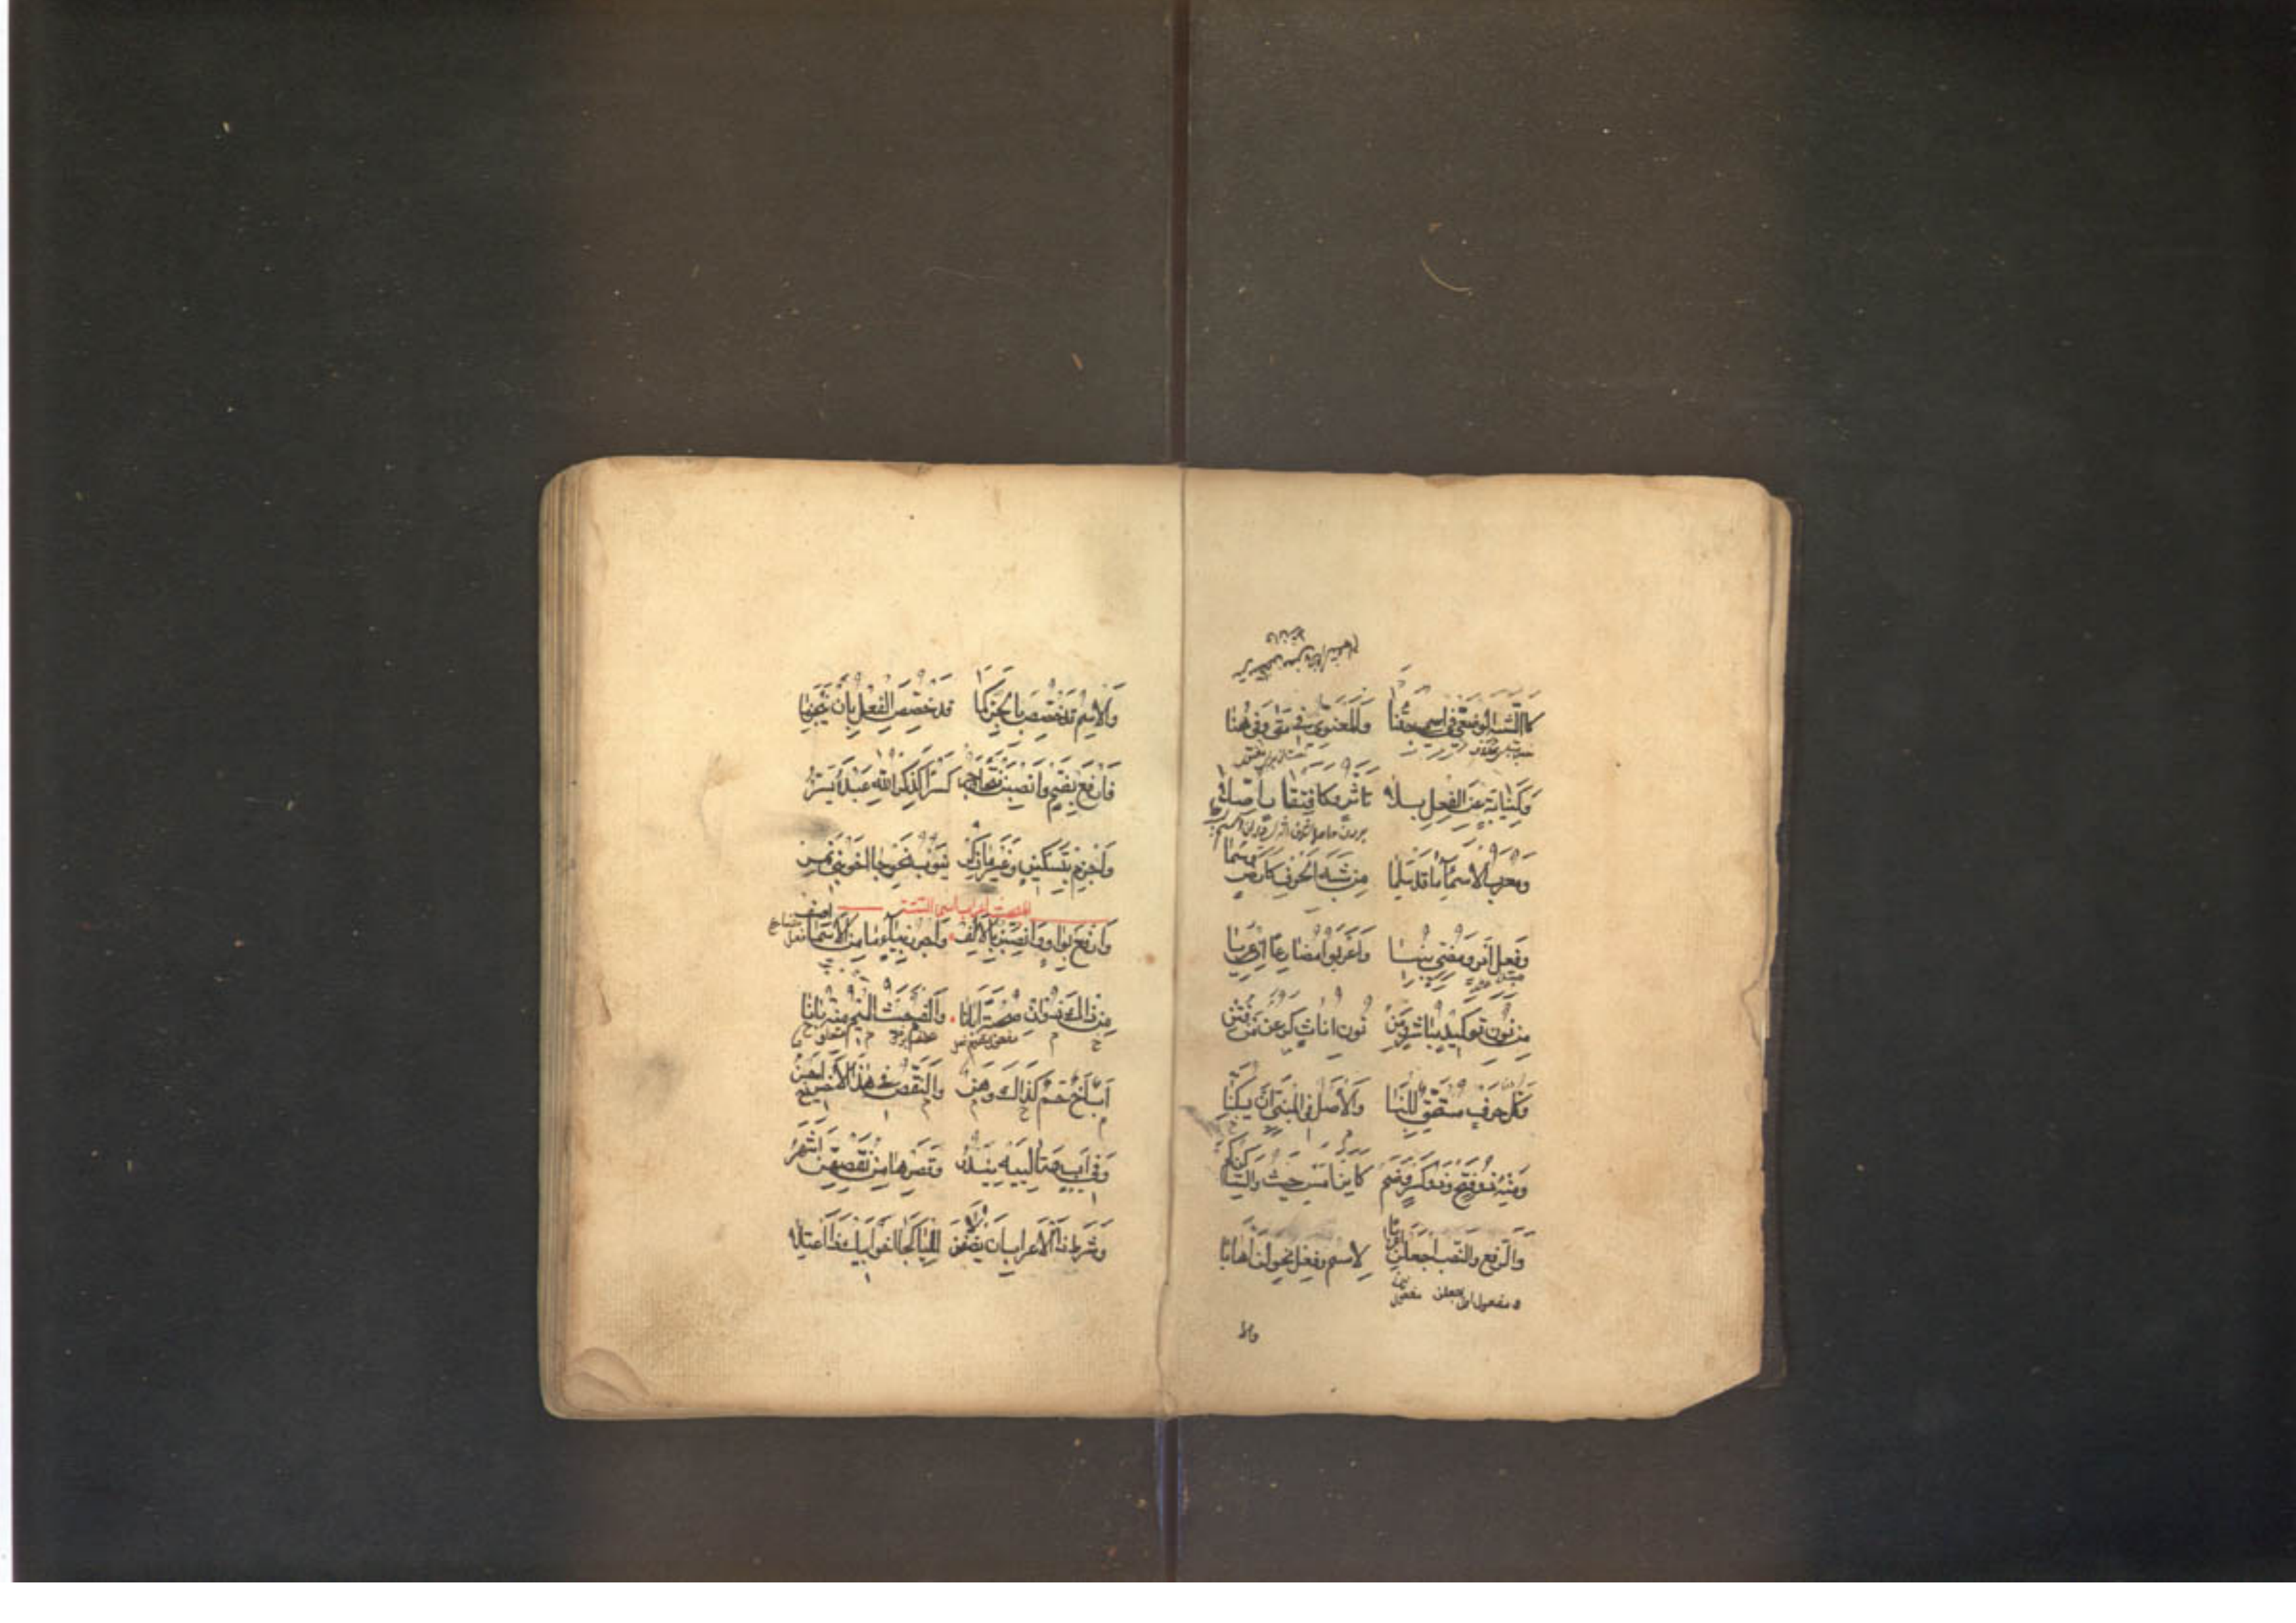 كَالشَّبَهِ الوَضْعِيِّ فِي اسْمَيْ جِئْتَنَا وَالمَعْنَوِيِّ فِي مَتَى وَفِي هُنَا
وَكَنِيَابَةٍ عَنِ الفِعْلِ بِلَا تَأَثُّرٍ وَكَافْتِقَارٍ أُصِّلَا
وَمُعْرَبُ الاَسْمَاءِ مَا قَدْ سَلِمَا مِنْ شَبَهِ الحَرْفِ كَأَرْضٍ وَسُمَا
وَفِعْلُ أَمْرٍ وَمُضِيٍّ بُنِيَا وَأَعْرَبُوا مُضَارِعًا إِنْ عَرِيَا
مِنْ نُونِ تَوْكِيدٍ مُبَاشِرٍ وَمِنْ نُونِ إِنَاثٍ كَيَرُعْنَ مَنْ فُتِنْ
وَكُلُّ حَرْفٍ مُسْتَحِقٌّ لِلْبِنَا وَالأَصْلُ فِي المَبْنِيِّ أَنْ يُسَكَّنَا
وَمِنْهُ ذُو فَتْحٍ وَذُو كَسْرٍ وَضَمّ كَأَيْنَ أَمْسِ حَيْثُ وَالسَّاكِنُ كَمْ
وَالرَّفْعَ وَالنَّصْبَ اجْعَلَنْ إِعْرَابَا لِاسْمٍ وَفِعْلٍ نَحْوُ لَنْ أَهَابَا
مفعول اول جعلن مفعول
والا
وَالاِسْمُ قَدْ خُصِّصَ بِالجَرِّ كَمَا قَدْ خُصِّصَ الفِعْلُ بِأَنْ يَنْجَزِمَا
فَارْفَعْ بِضَمٍّ وَانْصِبَنْ فَتْحًا وَجُرّ كَسْرًا كَذِكْرُ اللهِ عَبْدَهُ يَسُرّ
وَاجْزِمْ بِتَسْكِينٍ وَغَيْرُ مَا ذُكِرْ يَنُوبُ نَحْوُ جَا أَخُو بَنِي نَمِرْ
وَارْفَعْ بِوَاوٍ وَانْصِبَنَّ بِالأَلِفْ وَاجْرُرْ بِيَاءٍ مَا مِنَ الأَسْمَا أَصِفْ
مِنْ ذَاكَ ذُو إِنْ صُحْبَةً أَبَانَا وَالفَمُ حَيْثُ المِيمُ مِنْهُ بَانَا
أَبٌ أَخٌ حَمٌ كَذَاكَ وَهَنُ وَالنَّقْصُ فِي هَذَا الأَخِيرِ أَحْسَنُ
وَفِي أَبٍ وَتَالِيَيْهِ يَنْدُرُ وَقَصْرُهَا مِنْ نَقْصِهِنَّ أَشْهَرُ
وَشَرْطُ ذَا الإِعْرَابِ أَنْ يُضَفْنَ لَا لِلْيَا كَجَا أَخُو أَبِيكَ ذَا اعْتِلَا